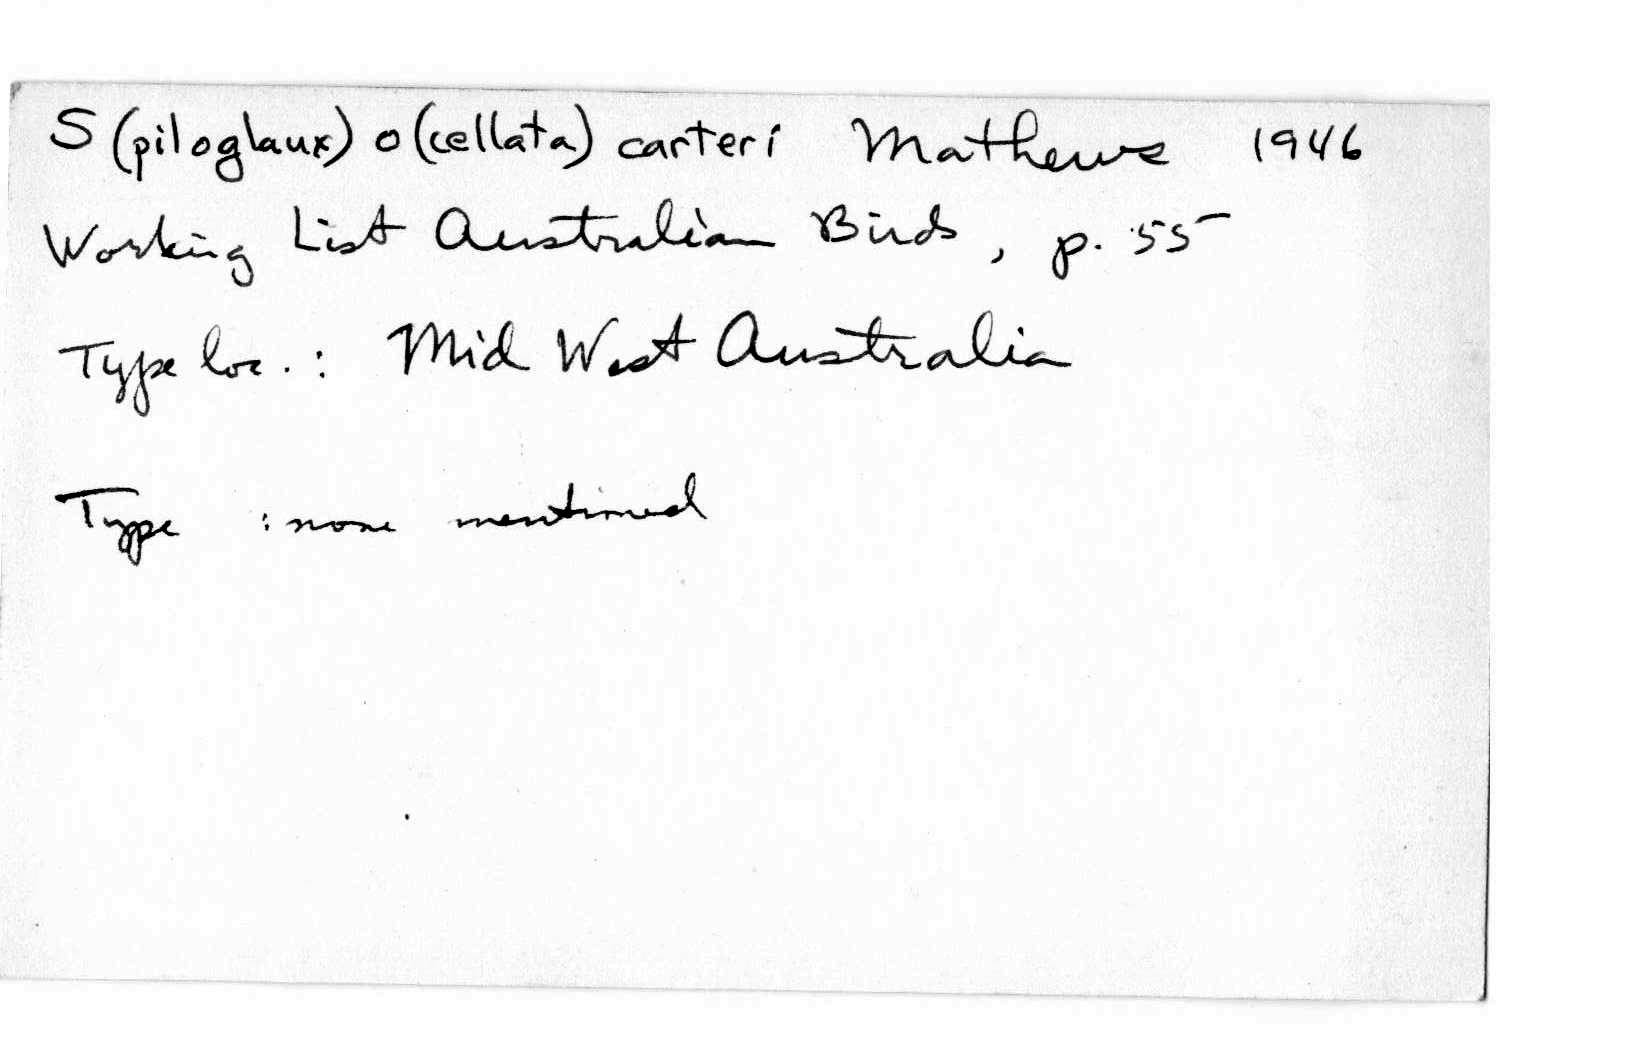 S(piloglaux) o(cellata) carteri Mathews 1946
Working List Australian Birds, p. 55
Type loc.: Mid West Australia
Type : none mentioned